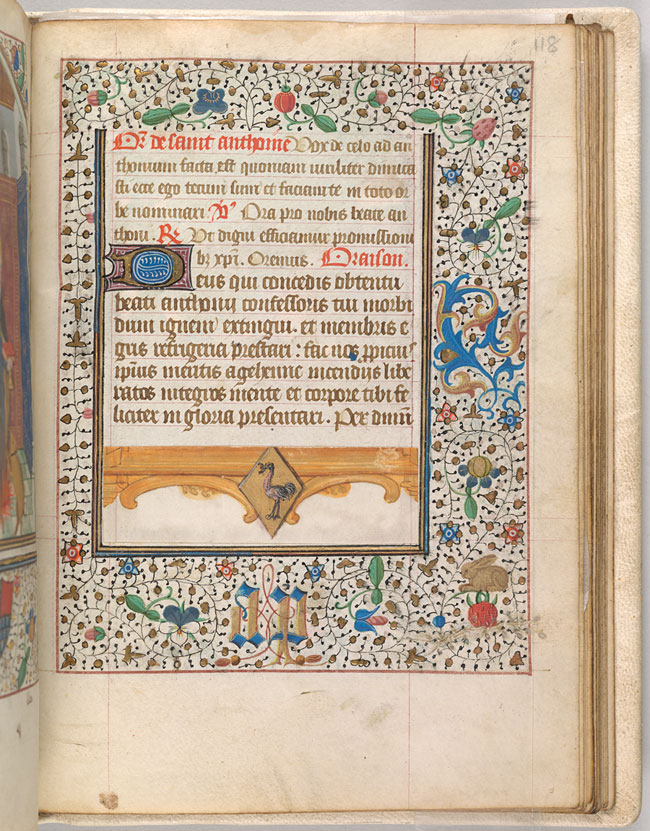 118
Or. de saint anthoine Vox de celo ad an
thonium facta est quoniam viriliter dimica
sti ecce ego tecum sum et faciam te in toto or
be nominari. V Ora pro nobis beate an
thoni. R Ut digni efficiamur promissioni
bz xpi. Oremus. Oraison.
Deus qui concedis obtentu
beati anthonij confessoris tui morbi
dum ignem extingui. et membris e
gris refrigeria prestari: fac nos ppiciu
ipius meritis a gehenne incendijs libe
ratos integros mente et corpore tibi fe
liciter in gloria presentari. Per dnm